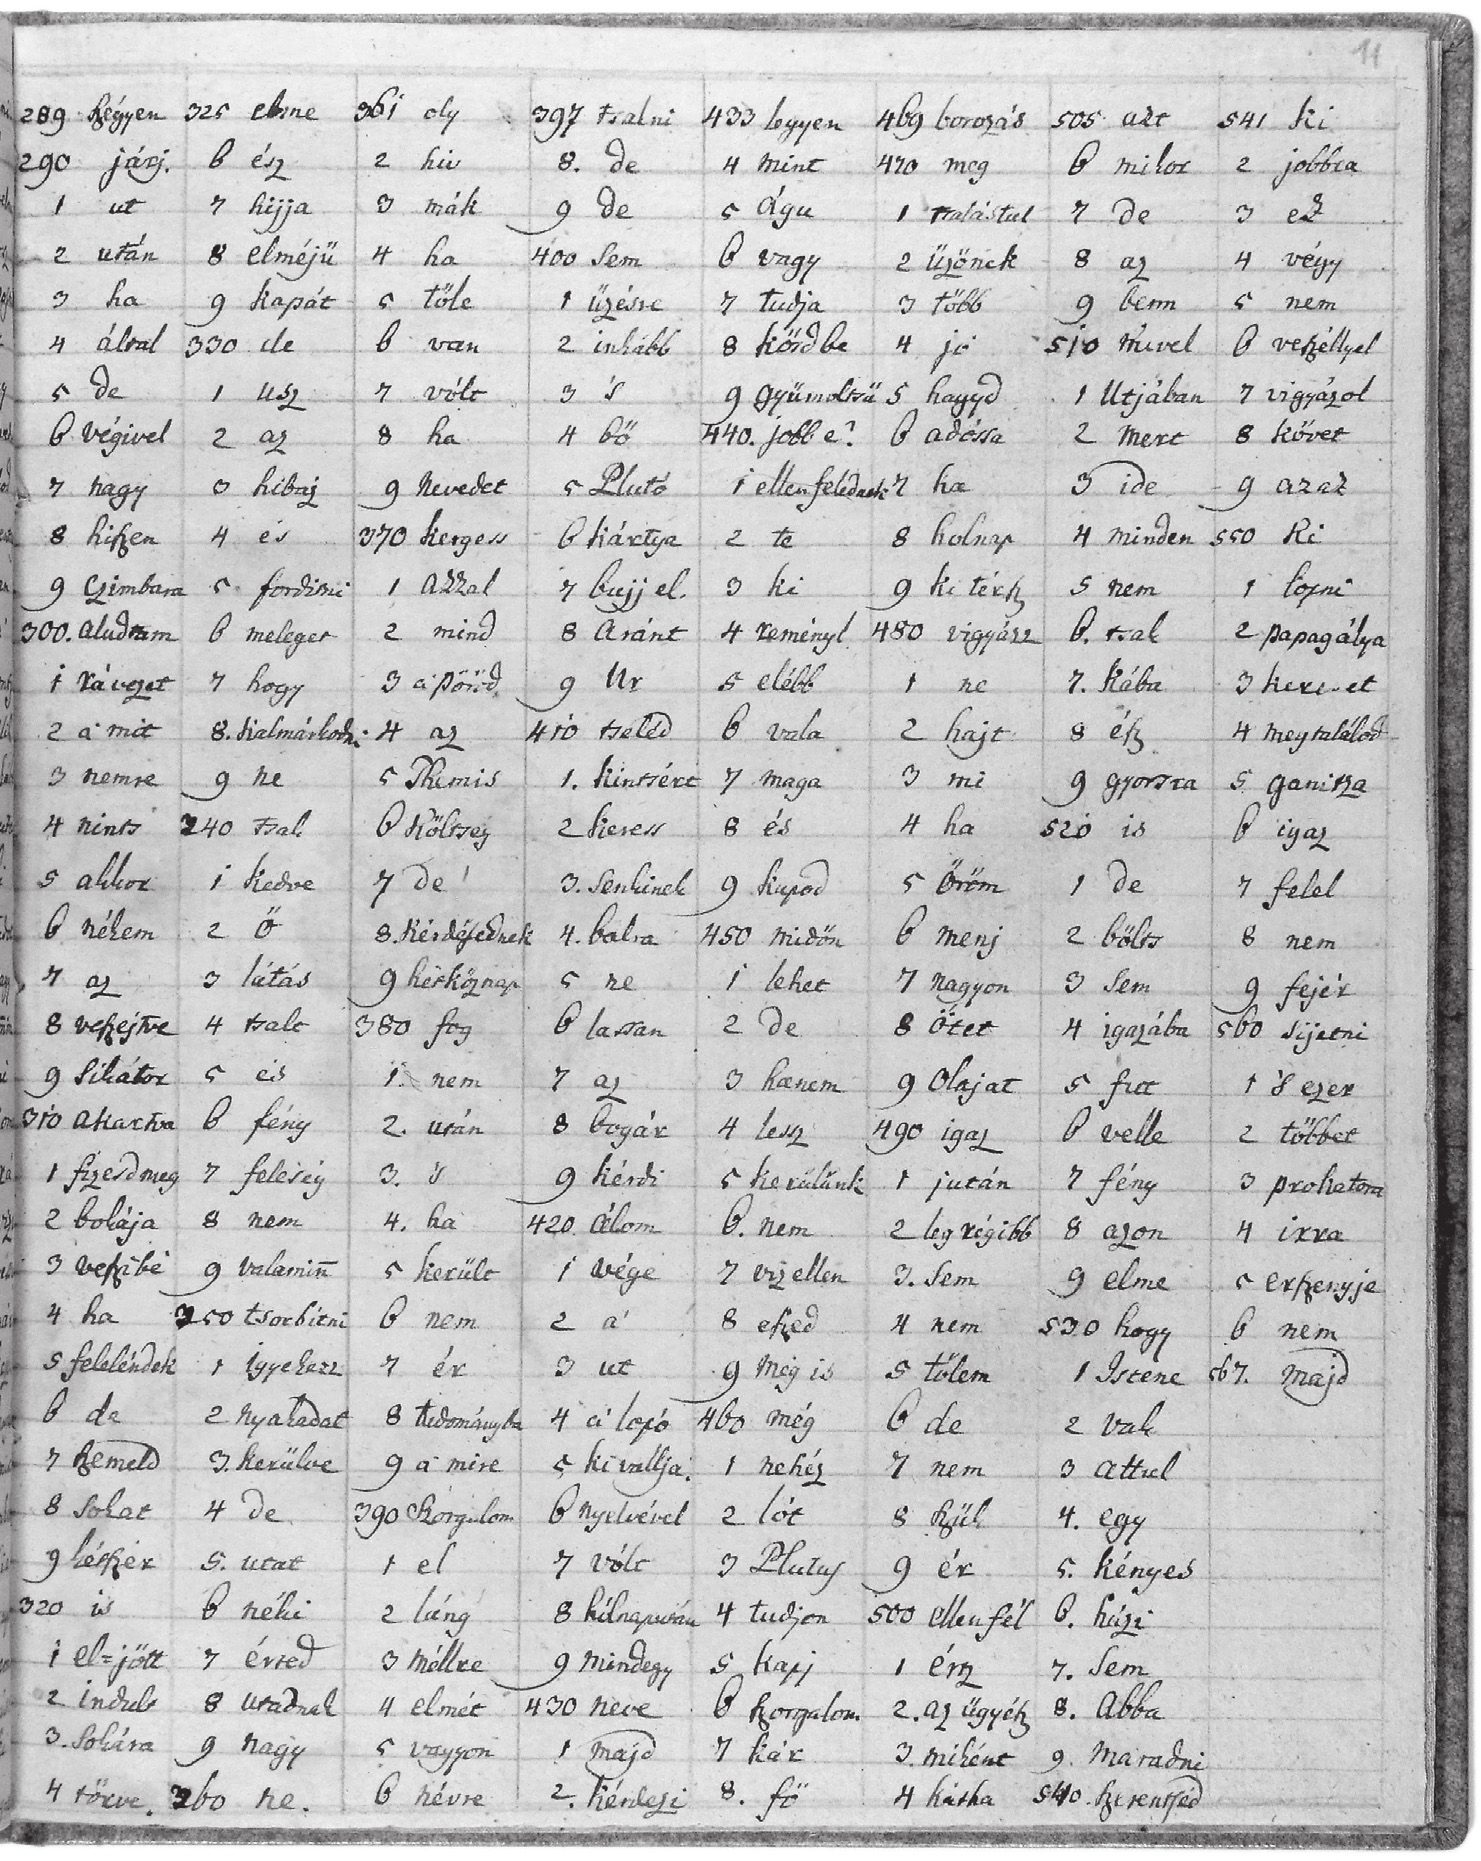 11
289 szégyen 325 elme 361 oly 397 tsalni 433 legyen 469 borozás 505 azt 541 ki
290 járj. 6 ész 2 hiv 8. de 4 mint 470 meg 6 mikor 2 jobbra
1 ut 7 hijja 3 mák 9 de 5 águ 1 tsalástul 7 de 3 ez
2 után 8 elméjü 4 ha 400 Sem 6 vagy 2 üzőnek 8 az 4 végy
3 ha 9 kapát 5 tőle 1 üzésre 7 tudja 3 több 9 benn 5 nem
4 által 330 de 6 van 2 inkább 8 kőrdbe 4 jó 510 mivel 6 veszéllyel
5 de 1 usz 7 vólt 3 's 9 gyümoltsü 5 hagyd 1 Utjában 7 vigyázol
6 végivel 2 az 8 ha 4 bö 440. jobb e? 6 adóssa 2 mert 8 követ
7 nagy 3 hibaj 9 Nevedet 5 Plutó 1 ellenfelednek 7 ha 3 ide 9 az az
8 hiszen 4 és 370 kergess 6 kártya 2 te 8 holnap 4 minden 550 ki
9 czimbara 5 fordítni 1 azzal 7 bujj el. 3 ki 9 ki térsz 5 nem 1 lopni
300. aludtam 6 meleget 2 mind 8 aránt 4 reményl 480 vigyázz 6. tsak 2 papagálya
1 rá vezet 7 hogy 3 a pöröd 9 Ur 5 elébb 1 ne 7. kába 3 kereset
2 a mit 8. kalmárkodni 4 az 410 tseléd 6 vala 2 hajt 8 ész 4 meg találod
3 nemre 9 ne 5 Themis 1. kintsért 7 maga 3 mi 9 gyorsra 5 ganitza
4 nints 340 tsak 6 költség 2 keress 8 és 4 ha 520 is 6 igaz
5 akkor 1 kedve 7 de 3. senkinek 9 kapod 5 Öröm 1 de 7 felel
6 nékem 2 Ő 8. kérdésednek 4. balra 450 midőn 6 menj 2 bölts 8 nem
7 az 3 látás 9 hétköznap 5 ne 1 lehet 7 nagyon 3 sem 9 fejér
8 veszejtve 4 tsalt 380 fog 6 lassan 2 de 8 Őtet 4 igazába 560 sijetni
9 sikátor 5 és 1. nem 7 az 3 hanem 9 Olajat 5 fut 1 's ezer
310 akartva 6 fény 2. után 8 bogár 4 lesz 490 igaz 6 velle 2 többet
1 fizesd meg 7 feleség 3. 's 9 kérdi 5 kerülünk 1 jután 7 fény 3 prokatora
2 bolája 8 nem 4. ha 420. álom 6. nem 2 leg régibb 8 azon 4 irra
3 veszibé 9 valamint 5 került 1 vége 7 viz ellen 3. sem 9 elme 5 erszenyje
4 ha 350 tsorbítni 6 nem 2 a' 8 eszed 4 nem 530 hogy 6 nem
5 feleléndek 1 igyekezz 7 ér 3 ut 9 Még is 5 tőlem 1 Istene 567. majd
6 de 2 nyakadat 8 tudományba 4 a' lopó 460 még 6 de 2 vak
7 szemeld 3. kerülve 9 a mire 5 ki vallja 1 nehéz 7 nem 3 attul
8 sokat 4 de 390 szorgalom 6 nyelvével 2 lót 8 szük 4. egy
9 hétszer 5. utat 1 el 7 vólt 3 Plutus 9 ér 5. kényes
320 is 6 néki 2 láng 8 hólnapután 4 tudjon 500 ellenfél 6. házi
1 el=jött 7 érted 3 mellre 9 mindegy 5 kapj 1 érsz 7. sem
2 indult 8 utadnak 4 elmét 430 neve 6 szorgalom 2. az ügyész 8. abba
3. Sokára 9 nagy 5 vagyon 1 majd 7 kár 3. miként 9. maradni
4 törve. 360 ne. 6 névre 2. kérdezi 8. fő 4 hátha 540 szerentséd